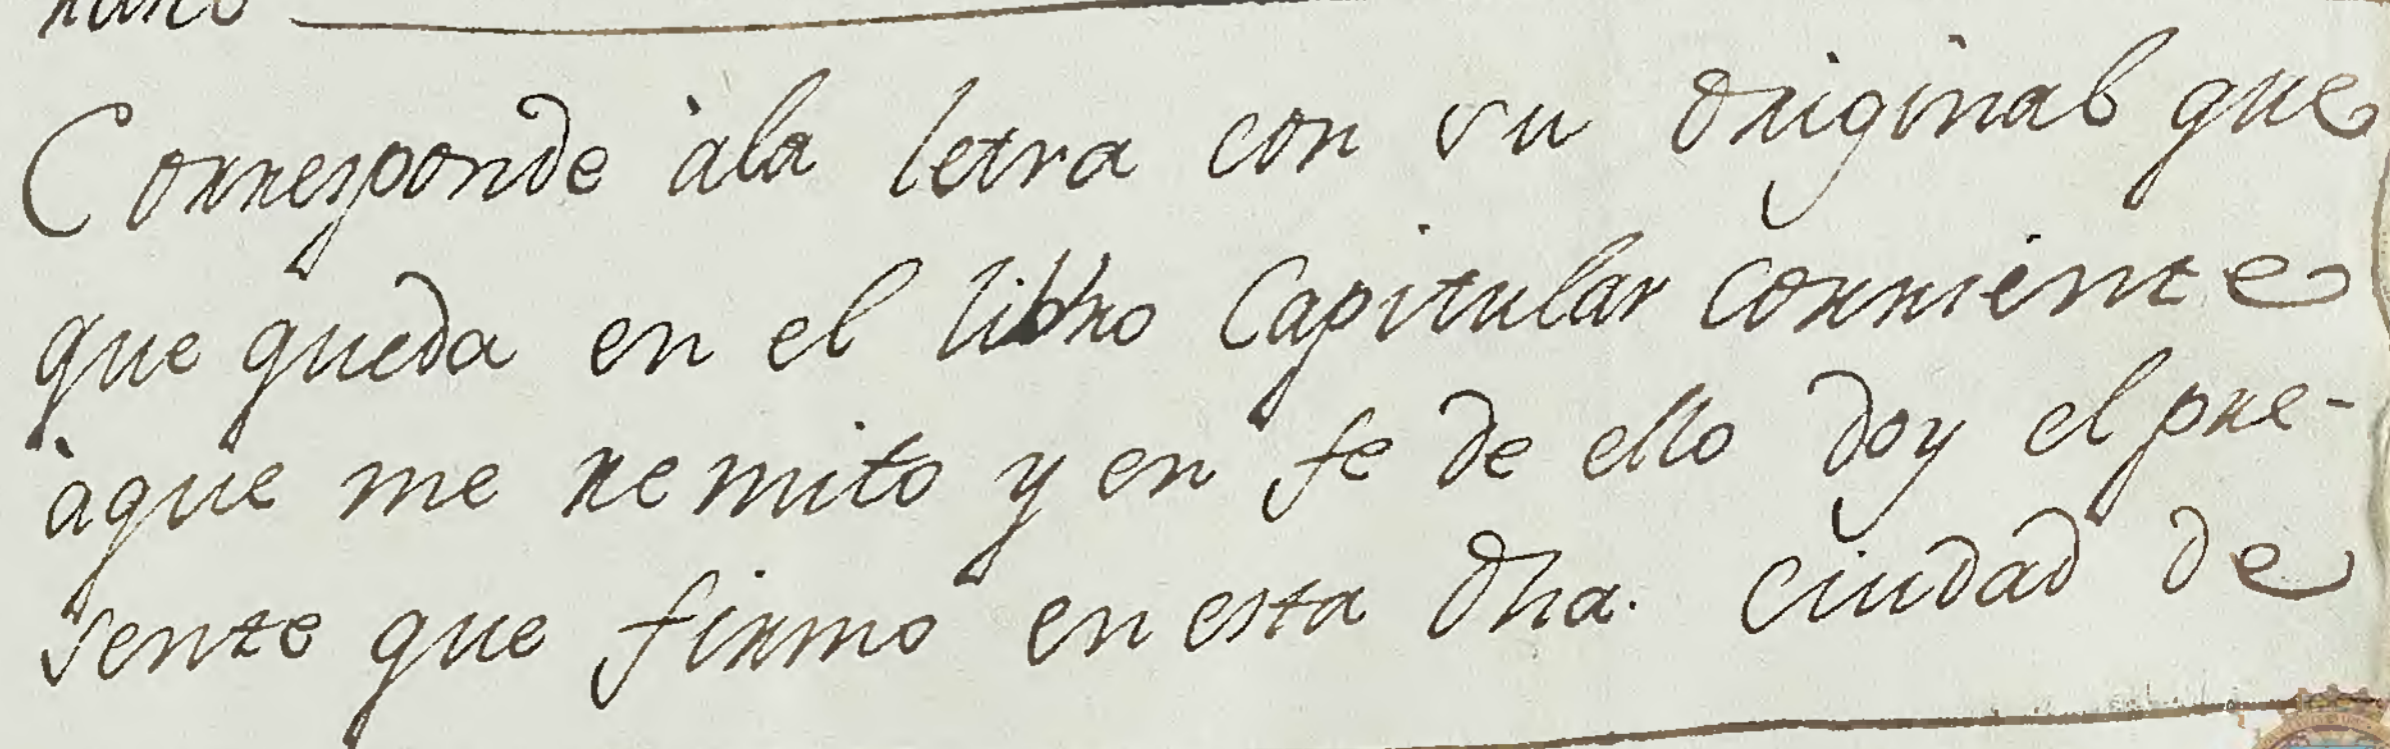 Corresponde àla letra con su original que
que queda en el libro Capitular corriente
àque me remito y en fe de ello doy el pre-
sente que firmo en esta dha. ciudad de